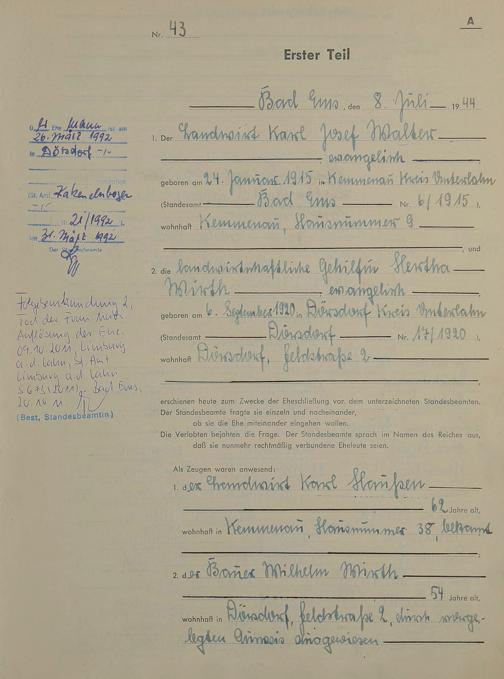 A
Nr. 43
Erster Teil
Bad Ems, den 8. Juli 1944
1. Der Landwirt Karl Josef Walter
evangelisch
geboren am 24. Januar 1915 in Kemmenau Kreis Unterlahn
(Standesamt Bad Ems Nr. 6/1915),
wohnhaft Kemmenau, Hausnummer 9
, und
2. die landwirtschaftliche Gehilfin Hertha
Wirth evangelisch
geboren am 6. September 1920 in Dörsdorf Kreis Unterlahn
(Standesamt Dörsdorf Nr. 17/1920),
wohnhaft Dörsdorf, Feldstraße 2
erschienen heute zum Zwecke der Eheschließung vor dem unterzeichneten Standesbeamten.
Der Standesbeamte fragte sie einzeln und nacheinander,
ob sie die Ehe miteinander eingehen wollen.
Die Verlobten bejahten die Frage. Der Standesbeamte sprach im Namen des Reiches aus,
daß sie nunmehr rechtmäßig verbundene Eheleute seien.
Als Zeugen waren anwesend:
1. der Landwirt Karl
62 Jahre alt,
wohnhaft in Kemmenau, Hausnummer 38, bekannt
2. der Bauer Wilhelm Wirth
54 Jahre alt,
wohnhaft in Dörsdorf, Feldstraße 2, durch vorge-
legten Ausweis ausgewiesen
Ehemann ist am
26. März 1992
in Dörsdorf -/-
St. Amt Katzenelnbogen
-/-
Nr. 21/1992)
den 31. März 1992
Der Standesbeamte
Folgebeurkundung 2,
Tod der Frau nach
Auflösung der Ehe.
09.10.2011, Limburg
a.d. Lahn, St. Amt
Limburg a.d. Lahn
Bad Ems,
(Best. Standesbeamtin)